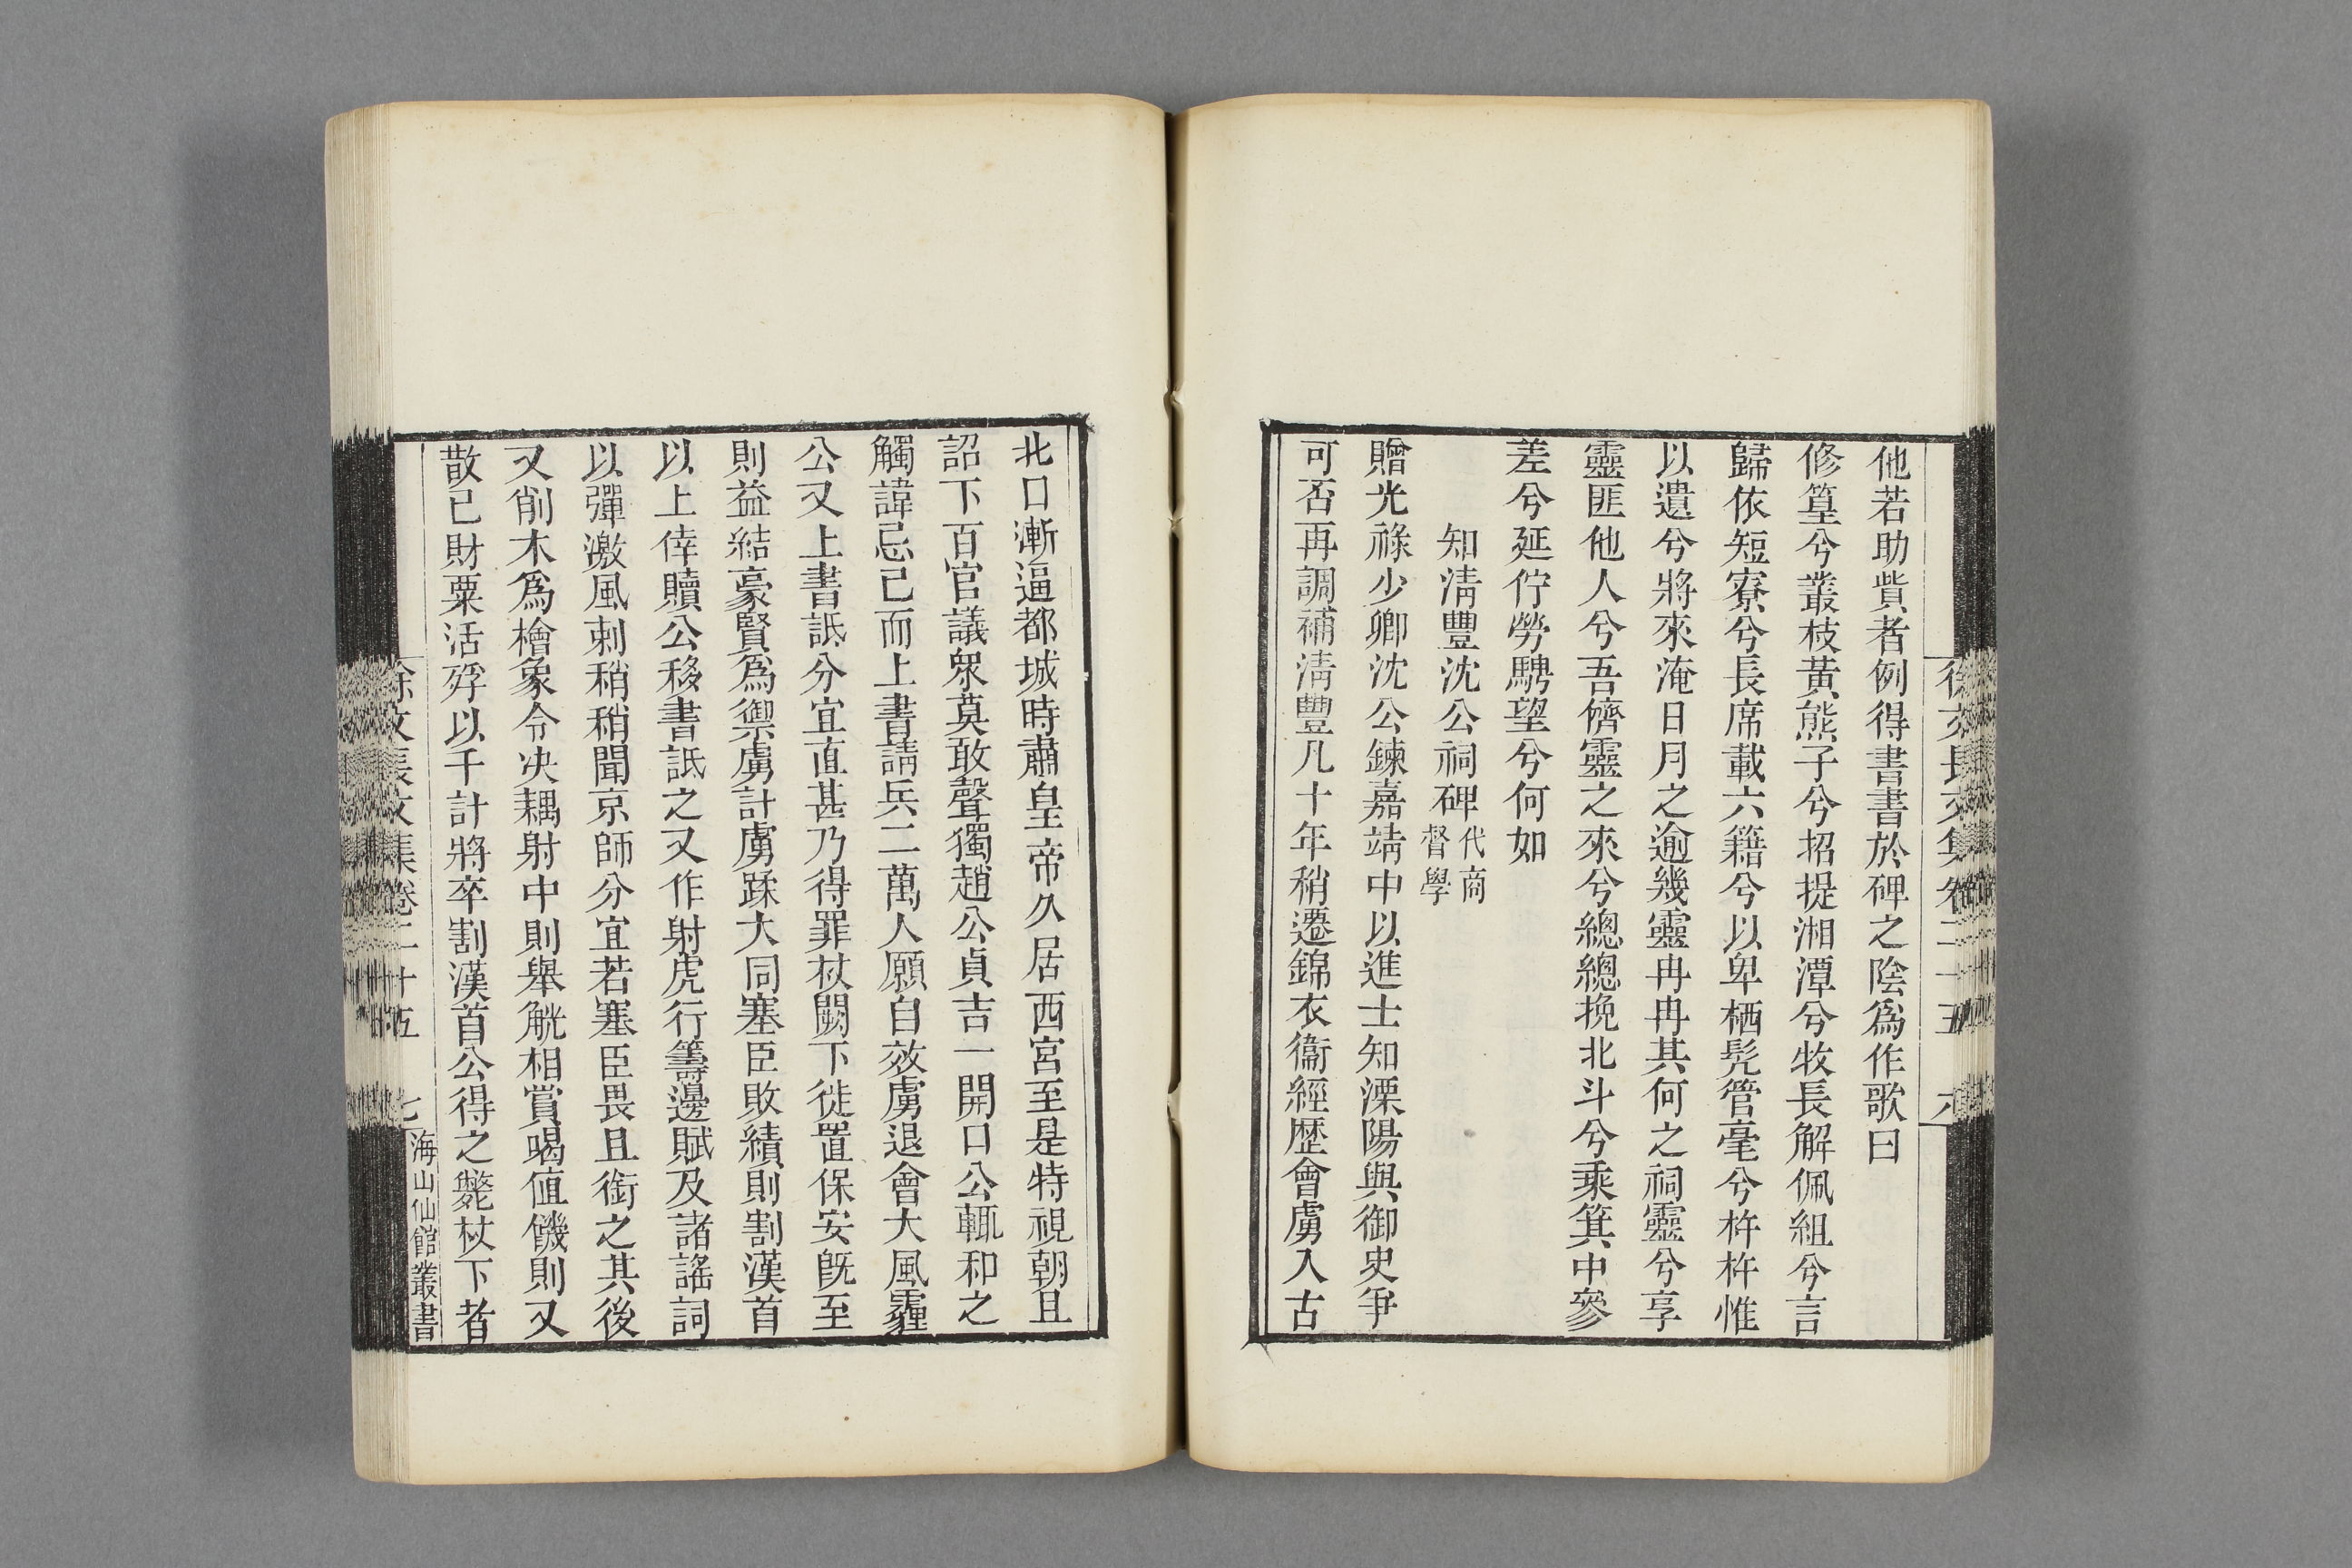 徐文長文集卷二十五 六
他若助貲者例得書書於碑之陰爲作歌曰
修篁兮叢枝黃熊子兮招提湘潭兮牧長解佩組兮言
歸依短寮兮長席載六籍兮以卑栖髡管毫兮杵杵惟
以遺兮將來淹日月之逾幾靈冉冉其何之祠靈兮享
靈匪他人兮吾儕靈之來兮總總挽北斗兮乘箕中參
差兮延佇勞騁望兮何如
知淸豐沈公祠碑代商督學
贈光祿少卿沈公鍊嘉靖中以進士知溧陽與御史爭
可否再調補淸豐凡十年稍遷錦衣衞經歷會虜入古
北口漸逼都城時肅皇帝久居西宮至是特視朝且
詔下百官議衆莫敢聲獨趙公貞吉一開口公輒和之
觸諱忌已而上書請兵二萬人願自效虜退會大風霾
公又上書詆分宜直甚乃得罪杖闕下徙置保安旣至
則益結豪賢爲禦虜計虜蹂大同塞臣敗績則割漢首
以上倖贖公移書詆之又作射虎行籌邊賦及諸謠詞
以彈激風刺稍稍聞京師分宜若塞臣畏且銜之其後
又削木爲檜象令决耦射中則舉觥相賞暍値饑則又
散已財粟活殍以千計將卒割漢首公得之斃杖下者
徐文長文集卷二十五 七
海山仙館叢書